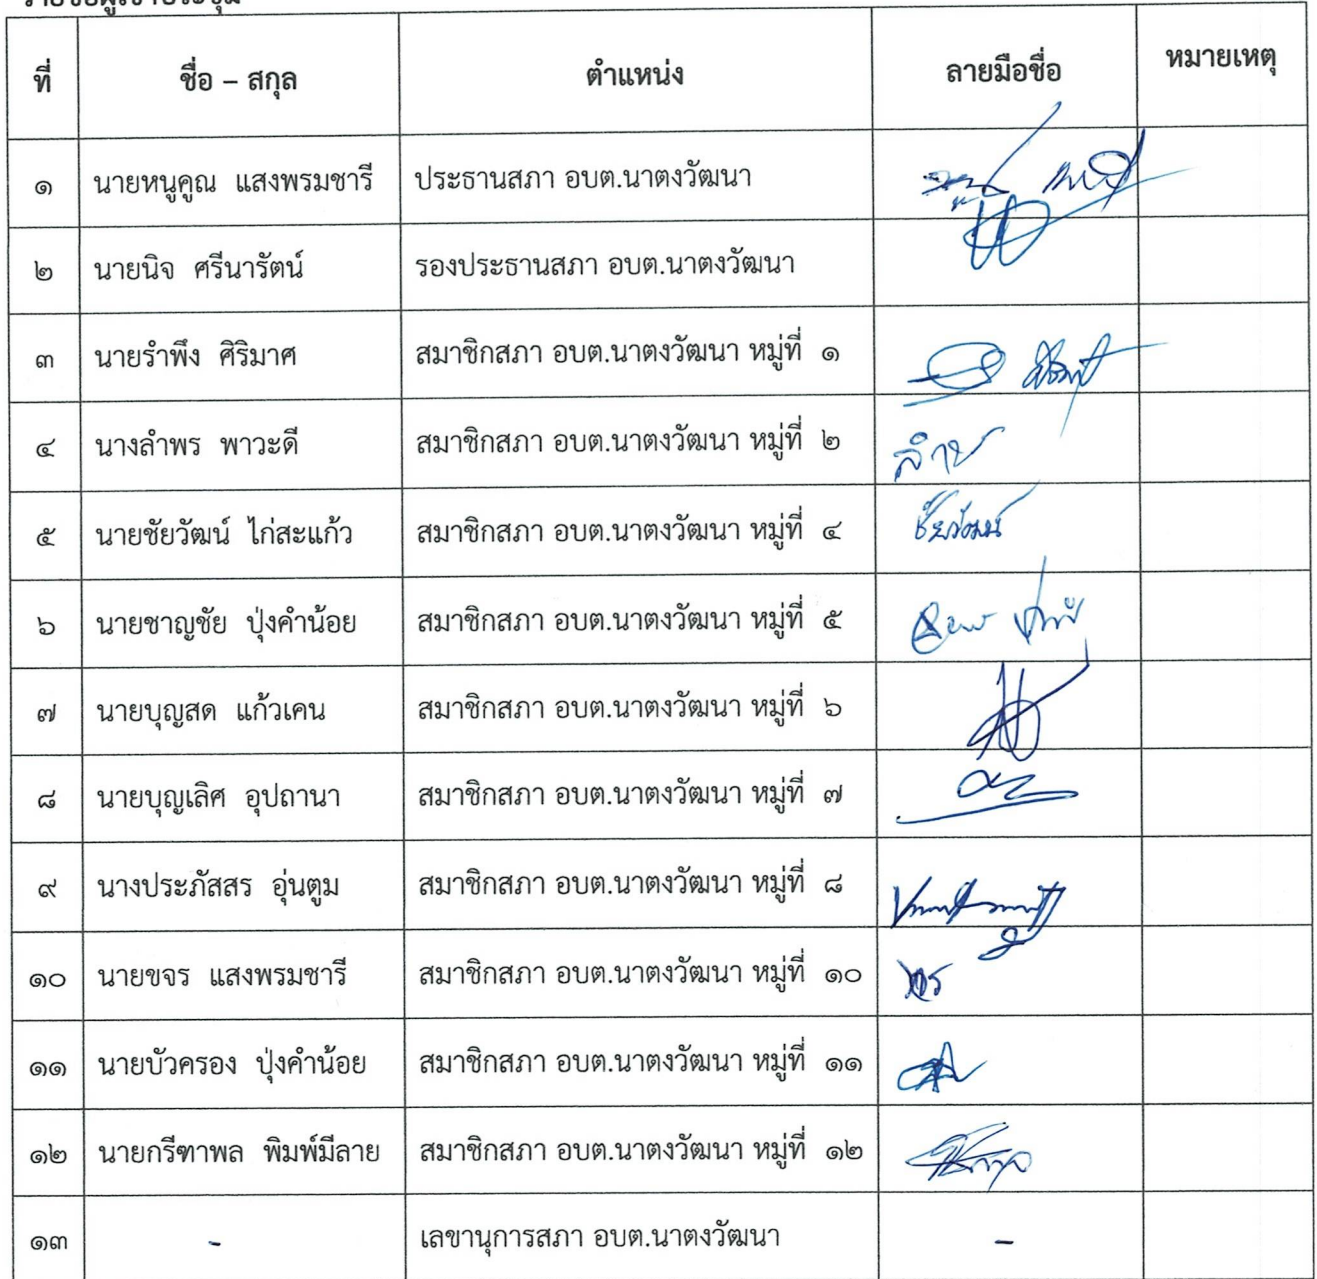 รายชื่อผู้เข้าประชุม
ที่ ชื่อ – สกุล ตำแหน่ง ลายมือชื่อ หมายเหตุ
๑ นายหนูคูณ แสงพรมชารี ประธานสภา อบต.นาตงวัฒนา
๒ นายนิจ ศรีนารัตน์ รองประธานสภา อบต.นาตงวัฒนา
๓ นายรำพึง ศิริมาศ สมาชิกสภา อบต.นาตงวัฒนา หมู่ที่ ๑
๔ นางลำพร พาวะดี สมาชิกสภา อบต.นาตงวัฒนา หมู่ที่ ๒
๕ นายชัยวัฒน์ ไก่สะแก้ว สมาชิกสภา อบต.นาตงวัฒนา หมู่ที่ ๔ ชัยวัฒน์
๖ นายชาญชัย ปุ่งคำน้อย สมาชิกสภา อบต.นาตงวัฒนา หมู่ที่ ๕
๗ นายบุญสด แก้วเคน สมาชิกสภา อบต.นาตงวัฒนา หมู่ที่ ๖
๘ นายบุญเลิศ อุปถานา สมาชิกสภา อบต.นาตงวัฒนา หมู่ที่ ๗
๙ นางประภัสสร อุ่นตูม สมาชิกสภา อบต.นาตงวัฒนา หมู่ที่ ๘
๑๐ นายขจร แสงพรมชารี สมาชิกสภา อบต.นาตงวัฒนา หมู่ที่ ๑๐
๑๑ นายบัวครอง ปุ่งคำน้อย สมาชิกสภา อบต.นาตงวัฒนา หมู่ที่ ๑๑
๑๒ นายกรีฑาพล พิมพ์มีลาย สมาชิกสภา อบต.นาตงวัฒนา หมู่ที่ ๑๒
๑๓ - เลขานุการสภา อบต.นาตงวัฒนา -